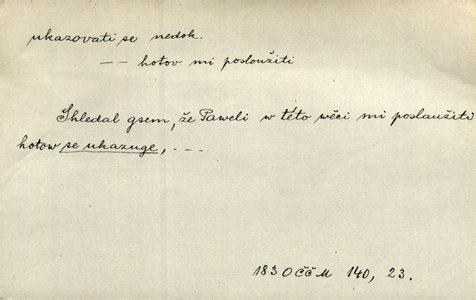 ukazovati se nedok.
— — hotov mi posloužiti
Shledal gsem, že Paweli w této wěci mi poslaužiti
hotow se ukazuge, - - -
1830 ČČM 140, 23.